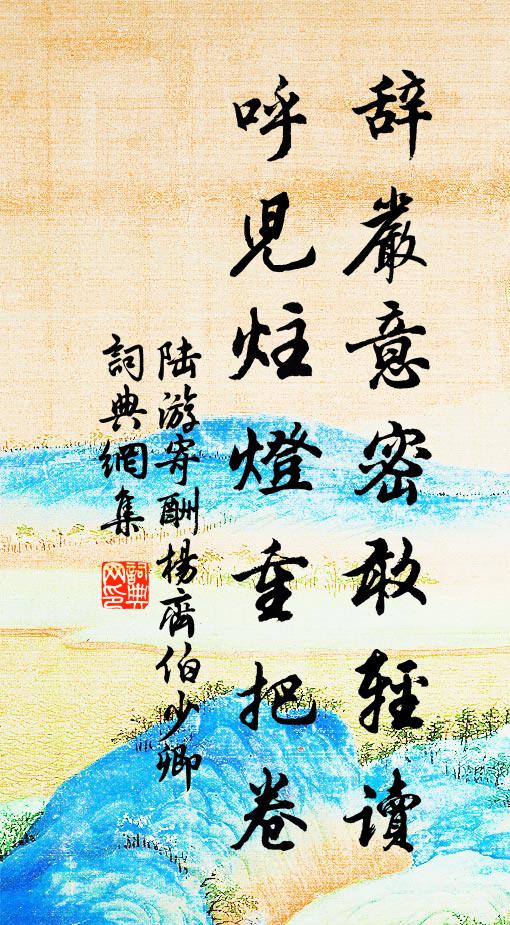 辞嚴意密敢輕讀
呼兒炷燈重把卷
陆游寄酬楊齊伯少卿
詞典網集
詞典網印